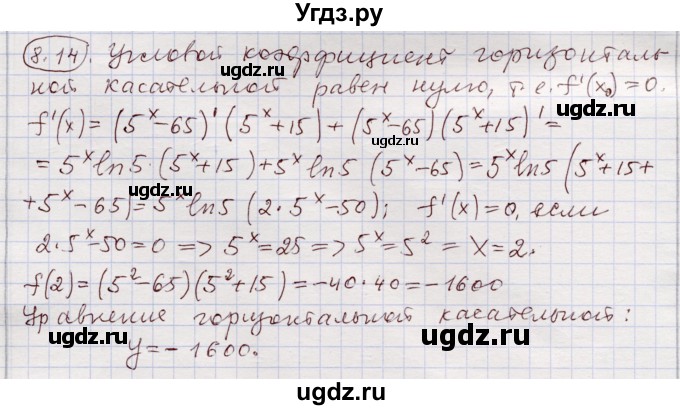 Угдз.ру
8.14. Угловой коэффициент горизонталь-
ной касательной равен нулю, т.е. f'(x₀)=0.
f'(x)=(5ˣ-65)'(5ˣ+15)+(5ˣ-65)(5ˣ+15)'=
=5ˣln5·(5ˣ+15)+5ˣln5(5ˣ-65)=5ˣln5(5ˣ+15+
+5ˣ-65)=5ˣln5(2·5ˣ-50); f'(x)=0, если
2·5ˣ-50=0 => 5ˣ=25 => 5ˣ=5² = X=2.
f(2)=(5²-65)(5²+15)=-40·40=-1600
Уравнение горизонтальной касательной:
y=-1600.
ugdz.ru
ugdz.ru
ugdz.ru
ugdz.ru
ugdz.ru
ugdz.ru
ugdz.ru
ugdz.ru
ugdz.ru
Угдз.ру